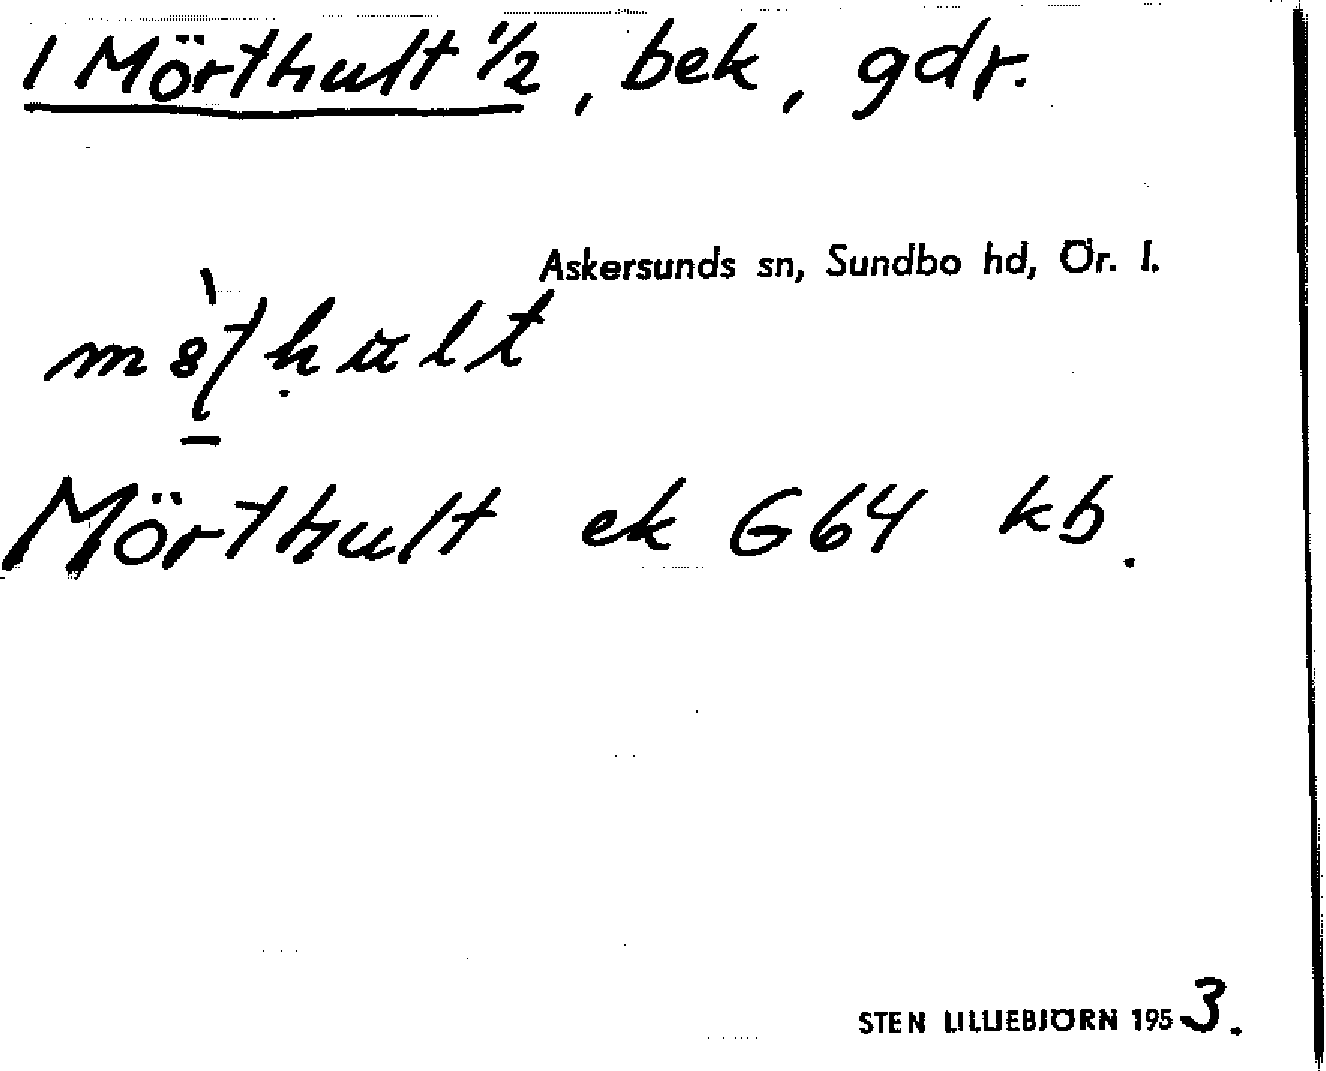 1 Mörthult 1/2, bek, gdr.
Askersunds sn, Sundbo hd, Ör. l.
Mörthult ek G64 kb.
STEN LILLJEBJÖRN 1953.